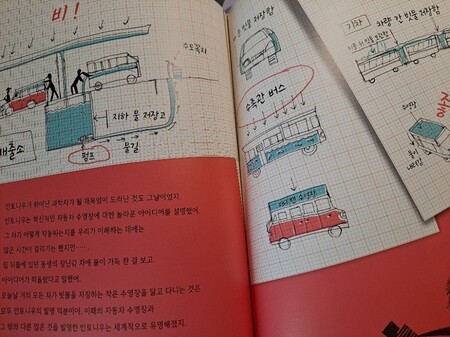 비!
수도꼭지
배출소
지하 물 저장고
펌프
물길
민토니우가 뛰어난 과학자가 될 재목임이 드러난 것도 그날이었지.
민토니우는 혁신적인 자동차 수영장에 대한 놀라운 아이디어를 설명했어.
그 차가 어떻게 작동하는지를 우리가 이해하는 데에는
많은 시간이 걸리기는 했지만……
집 뒤뜰에 있던 동생의 장난감 차에 물이 가득 찬 걸 보고
아이디어가 떠올랐다고 말했어.
오늘날 거의 모든 차가 빗물을 저장하는 작은 수영장을 달고 다니는 것은
모두 민토니우의 발명 덕분이야. 이때의 자동차 수영장과
그 밖의 다른 많은 것을 발명한 민토니우는 세계적으로 유명해졌지.
빗물 저장함
수족관 버스
기차
차량 간 빗물 저장함